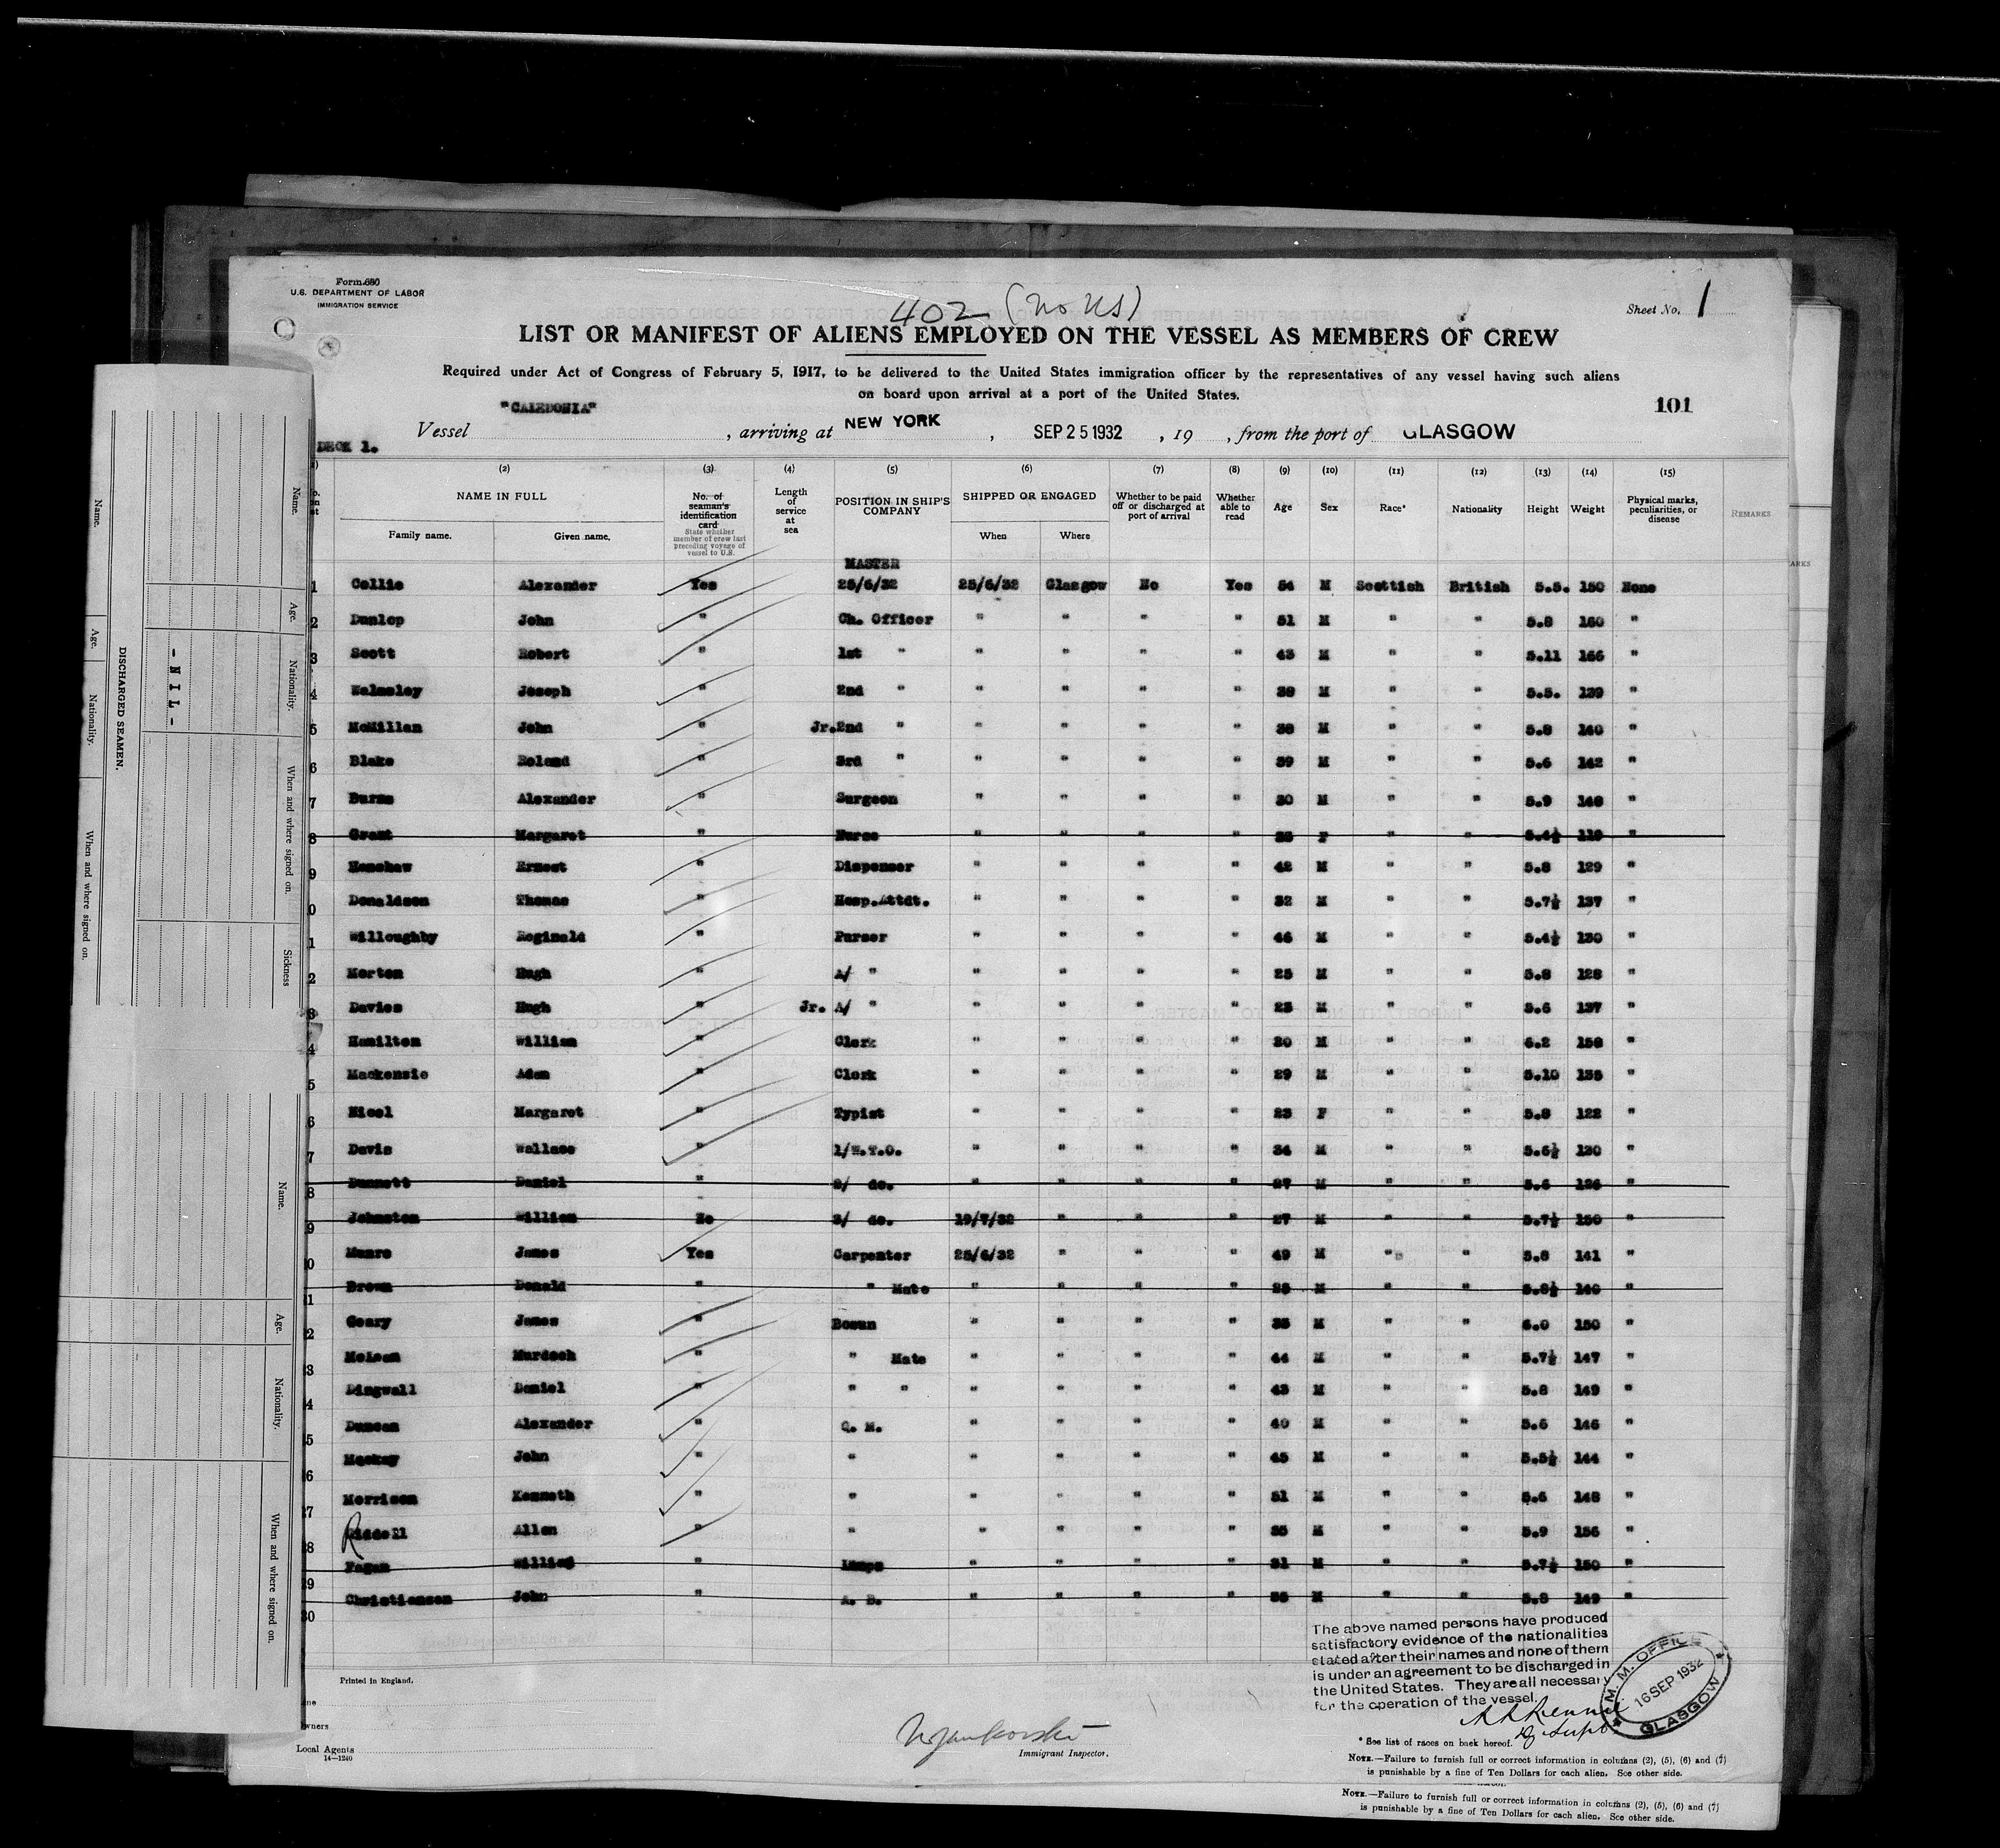 Form 680
U.S. DEPARTMENT OF LABOR
IMMIGRATION SERVICE
402 (no US)
Sheet No. 1
LIST OR MANIFEST OF ALIENS EMPLOYED ON THE VESSEL AS MEMBERS OF CREW
Required under Act of Congress of February 5, 1917, to be delivered to the United States immigration officer by the representatives of any vessel having such aliens
on board upon arrival at a port of the United States.
101
Vessel "CALEDONIA", arriving at NEW YORK, SEP 25 1932, 19 , from the port of GLASGOW
DECK 1.
(2) (3) (4) (5) (6) (7) (8) (9) (10) (11) (12) (13) (14) (15)
NAME IN FULL
Family name. Given name.
No. of seaman's identification card
State whether member of crew last preceding voyage of vessel to U.S.
Length of service at sea
POSITION IN SHIP'S COMPANY
SHIPPED OR ENGAGED
When Where
Whether to be paid off or discharged at port of arrival
Whether able to read
Age Sex Race* Nationality Height Weight
Physical marks, peculiarities, or disease
REMARKS
MASTER
1 Collie Alexander Yes 25/6/32 25/6/32 Glasgow No Yes 54 M Scottish British 5.5. 150 None
2 Dunlop John " Ch. Officer " " " " 51 M " " 5.8 160 "
3 Scott Robert " 1st " " " " " 43 M " " 5.11 166 "
4 Walmsley Joseph " 2nd " " " " " 38 M " " 5.5. 139 "
5 McMillan John " Jr.2nd " " " " " 38 M " " 5.8 140 "
6 Blake Roland " 3rd " " " " " 39 M " " 5.6 142 "
7 Burns Alexander " Surgeon " " " " 30 M " " 5.9 148 "
8 Grant Margaret " Nurse " " " " F " " 5.4½ 119 "
9 Henshaw Ernest " Dispenser " " " " 42 M " " 5.8 129 "
0 Donaldson Thomas " Hosp.Attdt. " " " " 32 M " " 5.7½ 137 "
1 Willoughby Reginald " Purser " " " " 46 M " " 5.4½ 130 "
2 Morton Hugh " A/ " " " " " 25 M " " 5.8 128 "
3 Davies Hugh " Jr. A/ " " " " " 23 M " " 5.6 137 "
4 Hamilton William " Clerk " " " " 30 M " " 6.2 158 "
5 Mackenzie Adam " Clerk " " " " 29 M " " 5.10 135 "
6 Nicol Margaret " Typist " " " " 23 F " " 5.8 122 "
7 Davis Wallace " 1/W.T.O. " " " " 34 M " " 5.6½ 130 "
8 Dunnett Daniel " 2/ do. " " " " 27 M " " 5.6 126 "
9 Johnston William No 3/ do. 19/7/32 " " " 27 M " " 5.7½ 150 "
0 Munro James Yes Carpenter 25/6/32 " " " 49 M " " 5.8 141 "
1 Brown Donald " " Mate " " " " 25 M " " 5.8½ 140 "
2 Geary James " Bosun " " " " 35 M " " 6.0 150 "
3 McLean Murdoch " " Mate " " " " 44 M " " 5.7½ 147 "
4 Dingwall Daniel " " " " " " " 43 M " " 5.8 149 "
5 Duncan Alexander " Q. M. " " " " 40 M " " 5.6 146 "
6 Mackay John " " " " " " 45 M " " 5.5½ 144 "
27 Morrison Kenneth " " " " " " 51 M " " 5.6 148 "
28 Riddell Allen " " " " " " 35 M " " 5.9 156 "
29 Fagan William " Lamps " " " " 31 M " " 5.7½ 150 "
30 Christianson John " A. B. " " " " 35 M " " 5.8 149 "
The above named persons have produced
satisfactory evidence of the nationalities
stated after their names and none of them
is under an agreement to be discharged in
the United States. They are all necessary
for the operation of the vessel.
M. M. OFFICE
16 SEP 1932
GLASGOW
Printed in England.
Local Agents
14—1240
Immigrant Inspector.
* See list of races on back hereof.
NOTE.—Failure to furnish full or correct information in columns (2), (5), (6) and (7)
is punishable by a fine of Ten Dollars for each alien. See other side.
NOTE.—Failure to furnish full or correct information in columns (2), (5), (6) and (7)
is punishable by a fine of Ten Dollars for each alien. See other side.
DISCHARGED SEAMEN.
Name. Age. Nationality. When and where signed on.
Name. Age. Nationality. When and where signed on. Sickness
- N I L -
Name. Age. Nationality. When and where signed on.